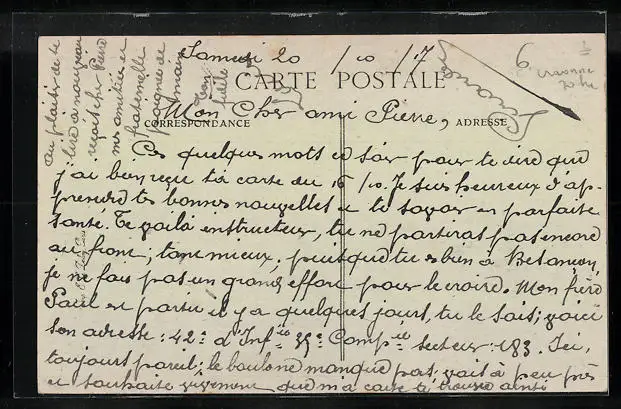 Samedi 20/10/17
6
CARTE POSTALE
Mon Cher ami Pierre,
CORRESPONDANCE
ADRESSE
Ces quelques mots ce soir pour te dire que
j'ai bien reçu ta carte du 16/10. Je suis heureux d'ap-
prendre tes bonnes nouvelles et te savoir en parfaite
santé. Te voilà instructeur, tu ne partiras pas encore
au front; tant mieux, puisque tu es bien à Besançon,
je ne fais pas un grand effort pour le croire. Mon frère
Paul est parti il y a quelques jours, tu le sais; voici
son adresse: 42e d'Infie 35e Compie secteur 183. Ici,
toujours pareil; le boulot ne manque pas; vais à peu près
et souhaite vivement que ma carte te trouve ainsi
Au plaisir de te
lire à nouveau
reçois cher Pierre
mes amitiés et
fraternelle
poignée de
main
Ton
fidèle